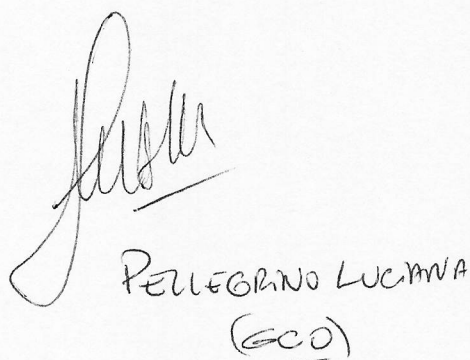 PELLEGRINO LUCIANA
(GCO)